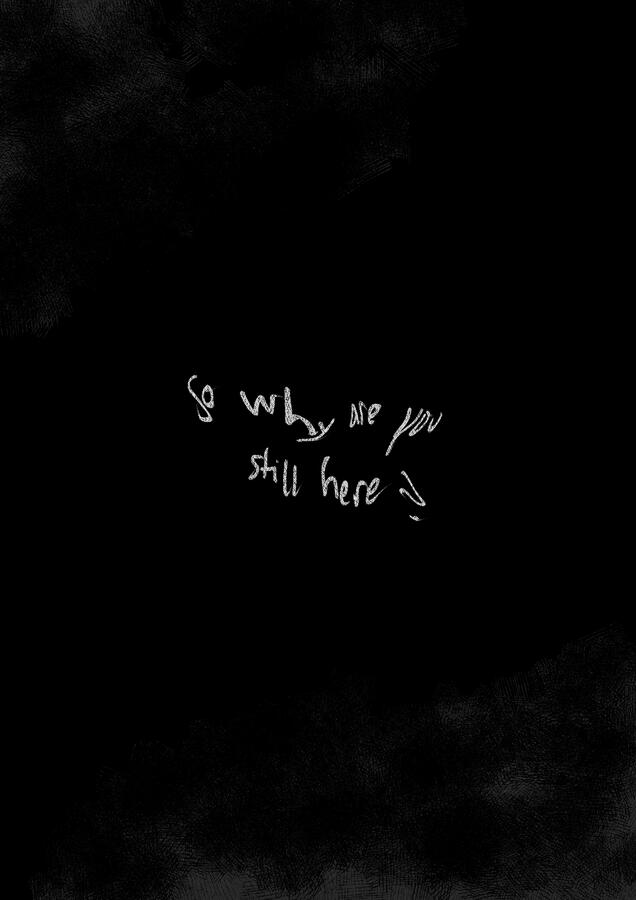 So why are you
still here?